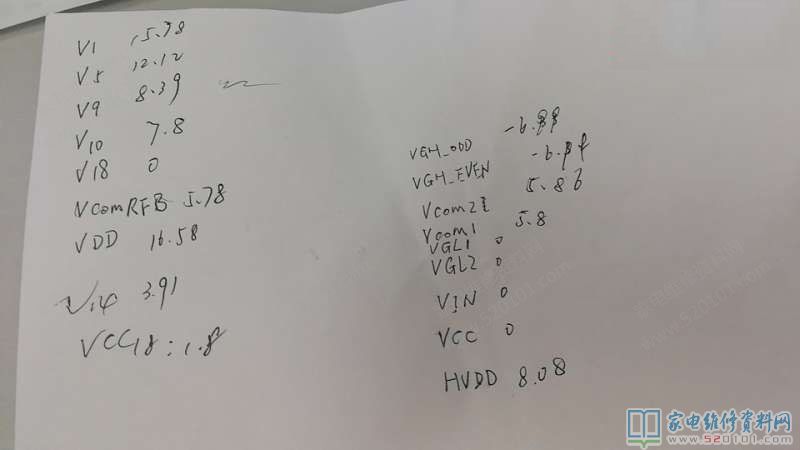 V1 15.78
V5 12.12
V9 8.39
V10 7.8
V18 0
VcomRFB 5.78
VDD 16.58
V14 3.91
VCC18:1.8
VGH_ODD
VGH_EVEN
Vcom2 5.86
Vcom1 5.8
VGL1 0
VGL2 0
VIN 0
VCC 0
HVDD 8.08
家电维修资料网
www.520101.com